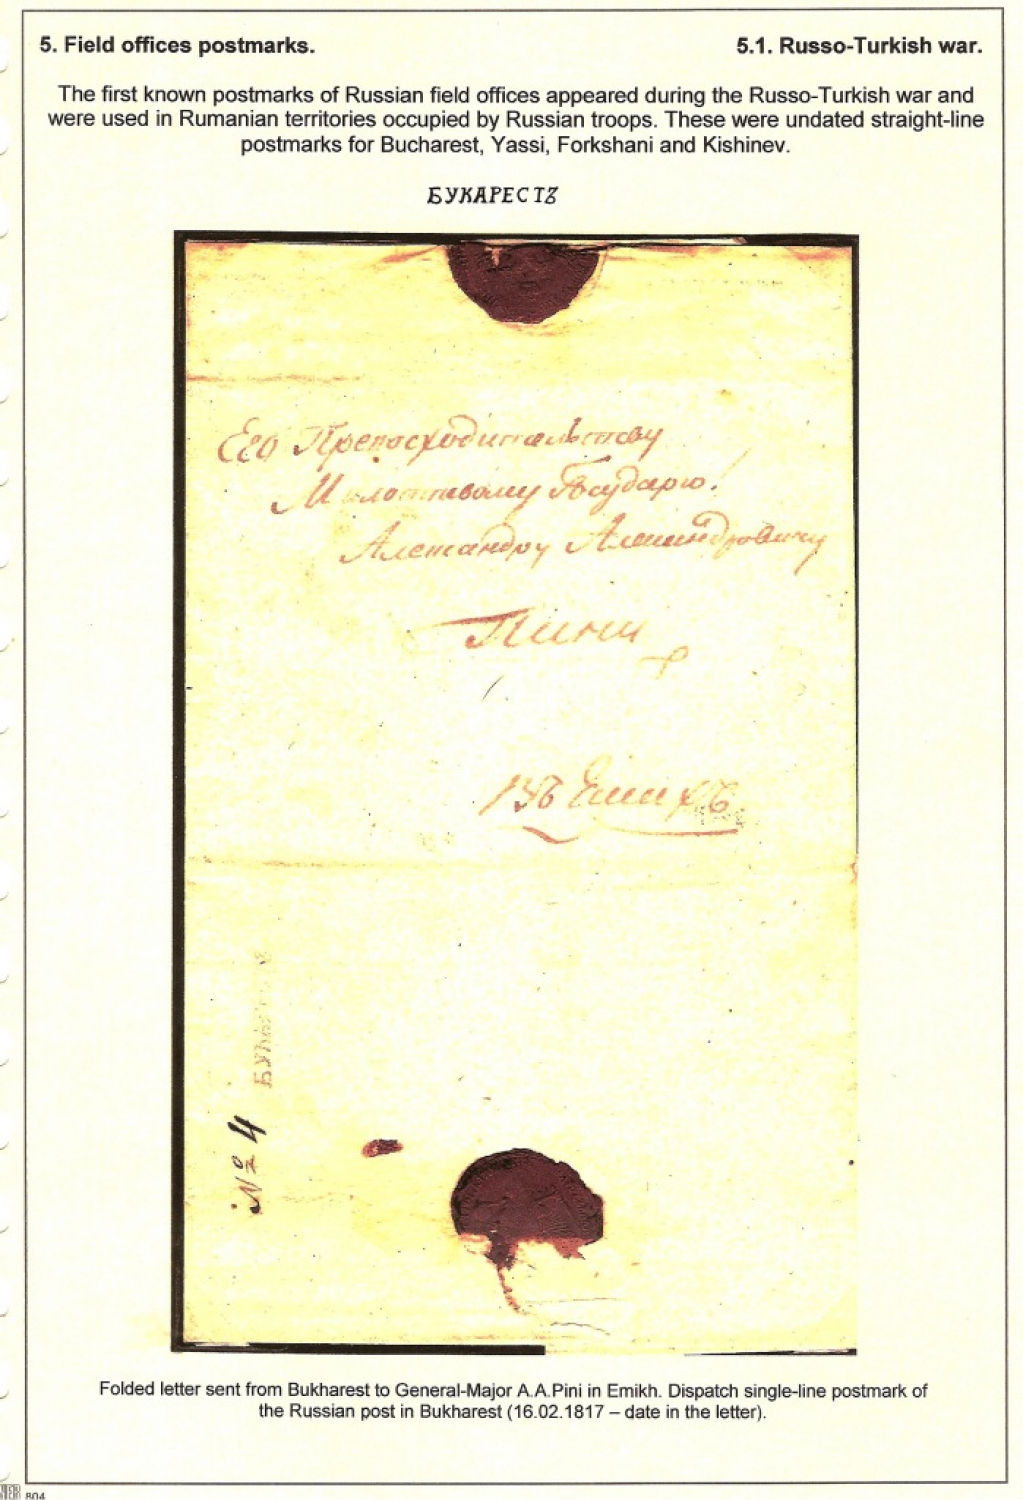 5. Field offices postmarks.
5.1. Russo-Turkish war.
The first known postmarks of Russian field offices appeared during the Russo-Turkish war and
were used in Rumanian territories occupied by Russian troops. These were undated straight-line
postmarks for Bucharest, Yassi, Forkshani and Kishinev.
БУКАРЕСТЪ
Его Превосходительству
Милостивому Государю!
Александру Александровичу
Пини
Въ
№ 4
Folded letter sent from Bukharest to General-Major A.A.Pini in Emikh. Dispatch single-line postmark of
the Russian post in Bukharest (16.02.1817 – date in the letter).
804